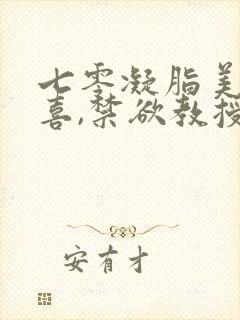 七零凝脂美
喜,禁欲教授
安有才